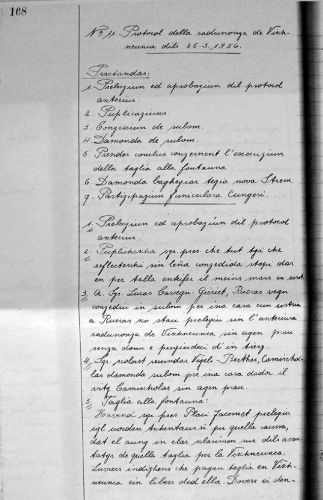 168
No 11 Protocol della radunonza de Visch-
neunca dils 25-3. 1956.
Tractandas:
1. Prelegiun ed aprobaziun dil protocol
anteriur.
2. Publicaziuns.
3. Concessiun de subom.
4. Damonda de subom.
5. Prender conclus concernent l'execuziun
della taglia alla fontauna.
6. Damonda baghegiar tegia nova Strem.
7. Participaziun funiculara Cungieri.
1. Prelegiun ed aprobaziun dil protocol
anteriur.
2. Publichescha sgr. pres che tut tgi che
sin lena concedida stopi dar
en per taglia il meins mars
3. A. Sgr. Lucas Cavegn-Gieriet, Rueras vegn
concediu in subom per ina casa cun
a Rueras
radunonza de Vischneunca sin agen prau
senza donn e pregiudeci d'in tierz.
4. Sgr. scolast Vigeli Berther, Camischo-
las damonda subom per ina casa dador il
vitg Camischolas sin agen prau.
5. Taglia alla fontauna:
Havend sgr. pres. Placi Jacomet prelegiu
igl per quella caussa,
dat el aung in clar sur dils avan-
tatgs de quella taglia per la Vischneunca.
che pagan taglia en Visch-
neunca ein libers ded ella. Dovess ei den-